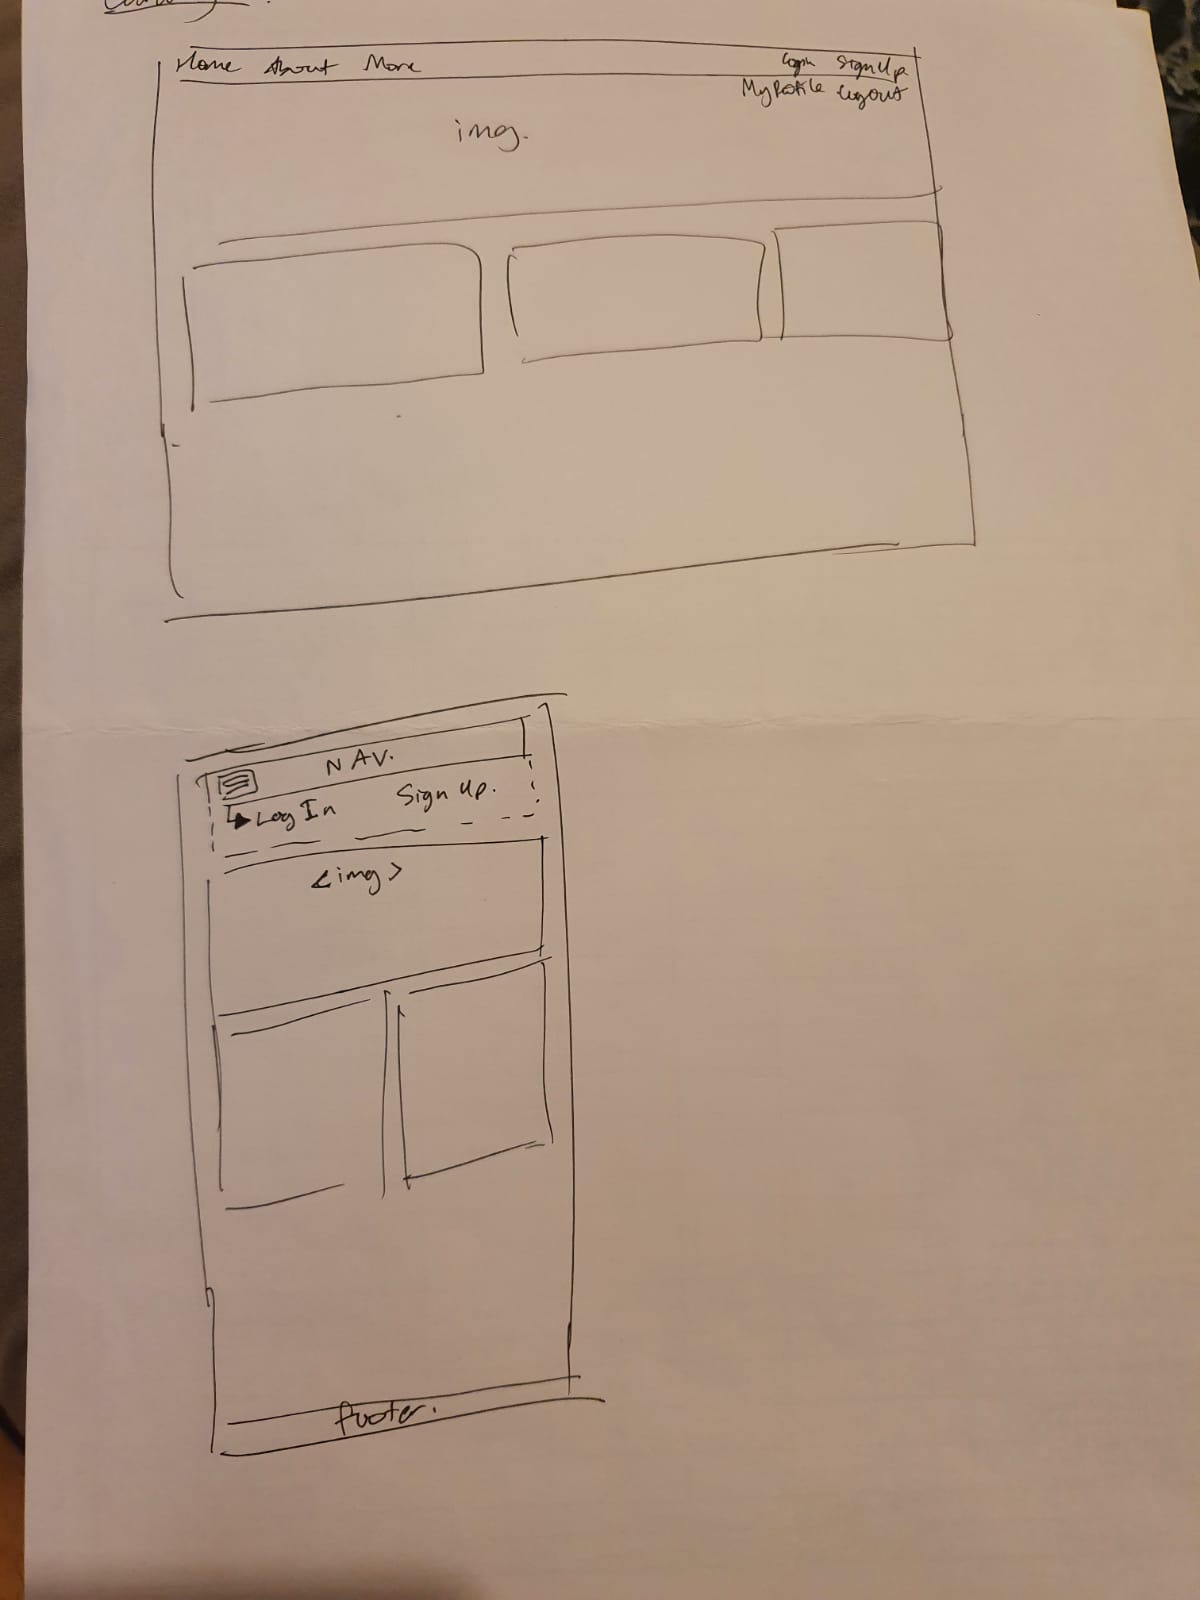 Home About More Login SignUp
MyProfile Logout
img.
NAV.
Log In Sign Up.
<img>
footer.